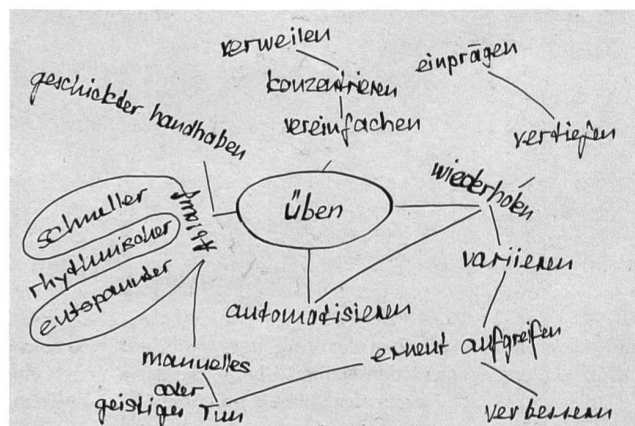 verweilen
konzentrieren
vereinfachen
einprägen
vertiefen
geschickter handhaben
wiederholen
üben
schneller
rhythmischer
entspannter
variieren
automatisieren
erneut aufgreifen
manuelles
oder
geistiges Tun
verbessern